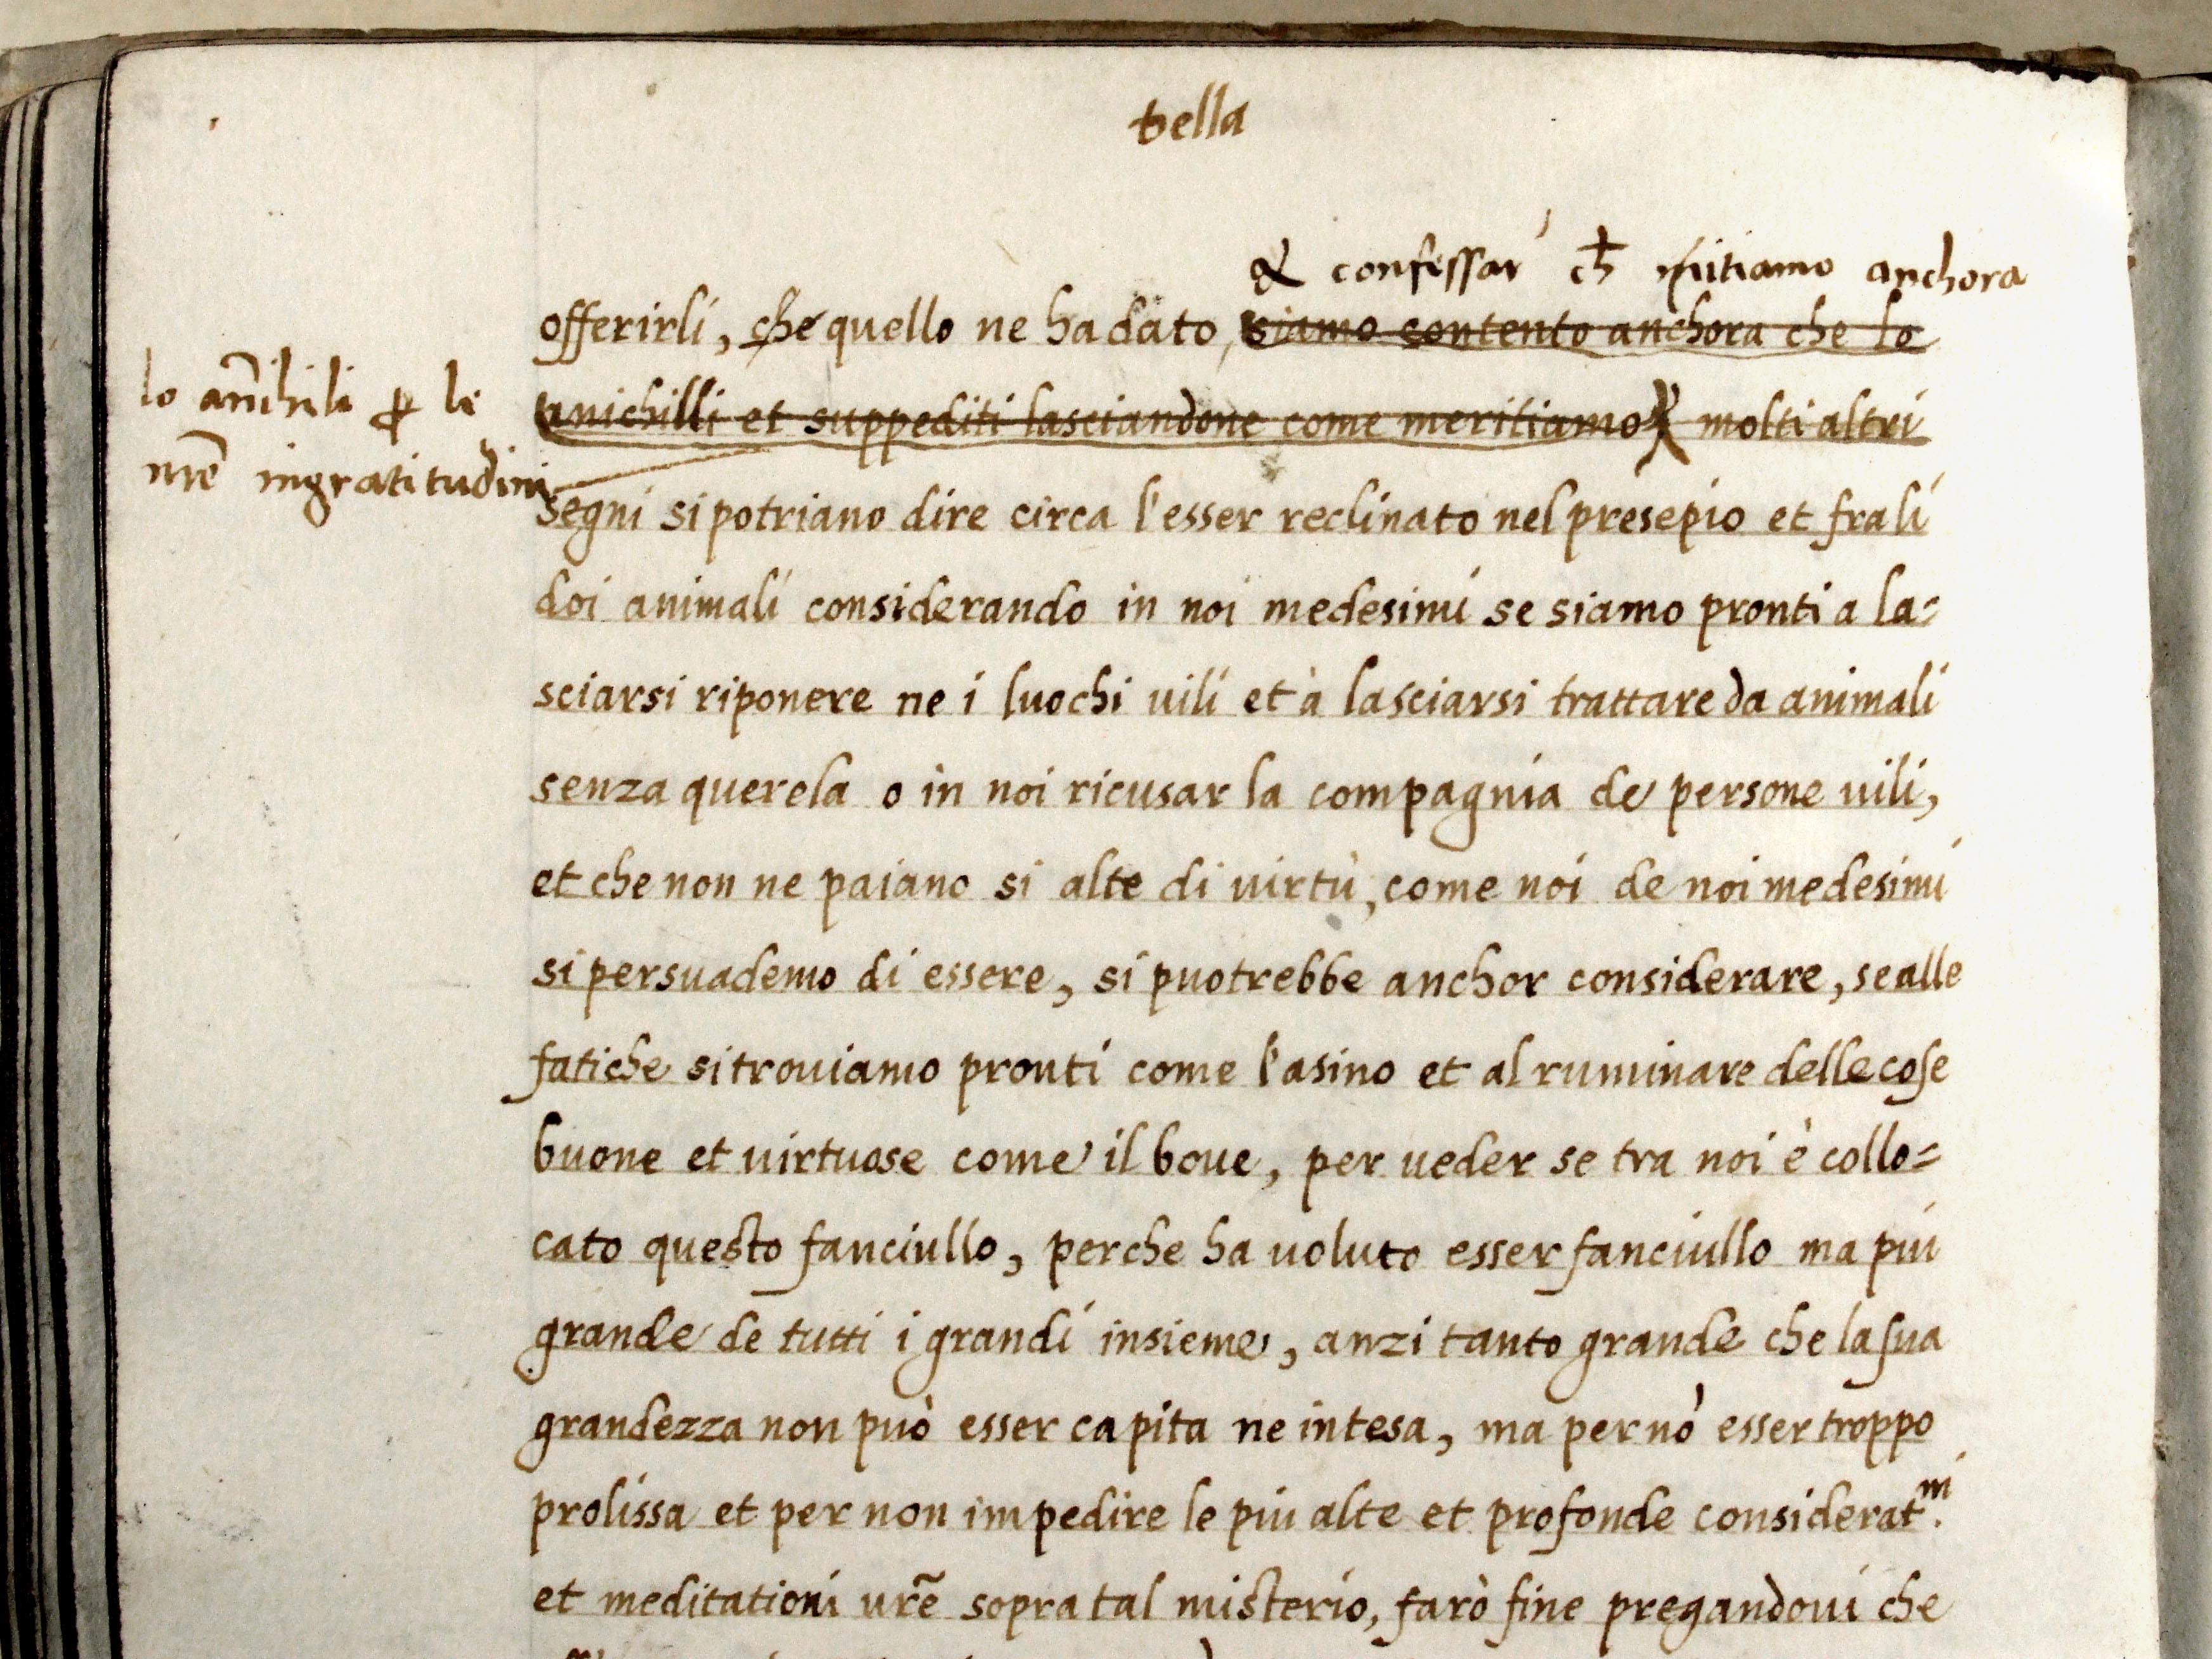 della
& confessar ch meritiamo anchora
offerirli, che quello ne ha dato, siamo contento anchora che lo
lo añihili p le
anichilli et suppediti lasciandone come meritiamo molti altri
nrẽ ingratitudini
segni si potriano dire circa l'esser reclinato nel presepio et fra li
doi animali considerando in noi medesimi se siamo pronti a la=
sciarsi riponere ne i luochi uili et à lasciarsi trattare da animali
senza querela o in noi ricusar la compagnia de persone uili,
et che non ne paiano si alte di uirtù, come noi de noi medesimi
si persuademo di essere, si puotrebbe anchor considerare, se alle
fatiche si trouiamo pronti come l'asino et al ruminare delle cose
buone et uirtuose come il boue, per ueder se tra noi è collo=
cato questo fanciullo, perche ha uoluto esser fanciullo ma piu
grande de tutti i grandi insieme, anzi tanto grande che la sua
grandezza non può esser capita ne intesa, ma per nõ esser troppo
prolissa et per non impedire le piu alte et profonde considerat.ni
et meditationi urẽ sopra tal misterio, farò fine pregandoui che